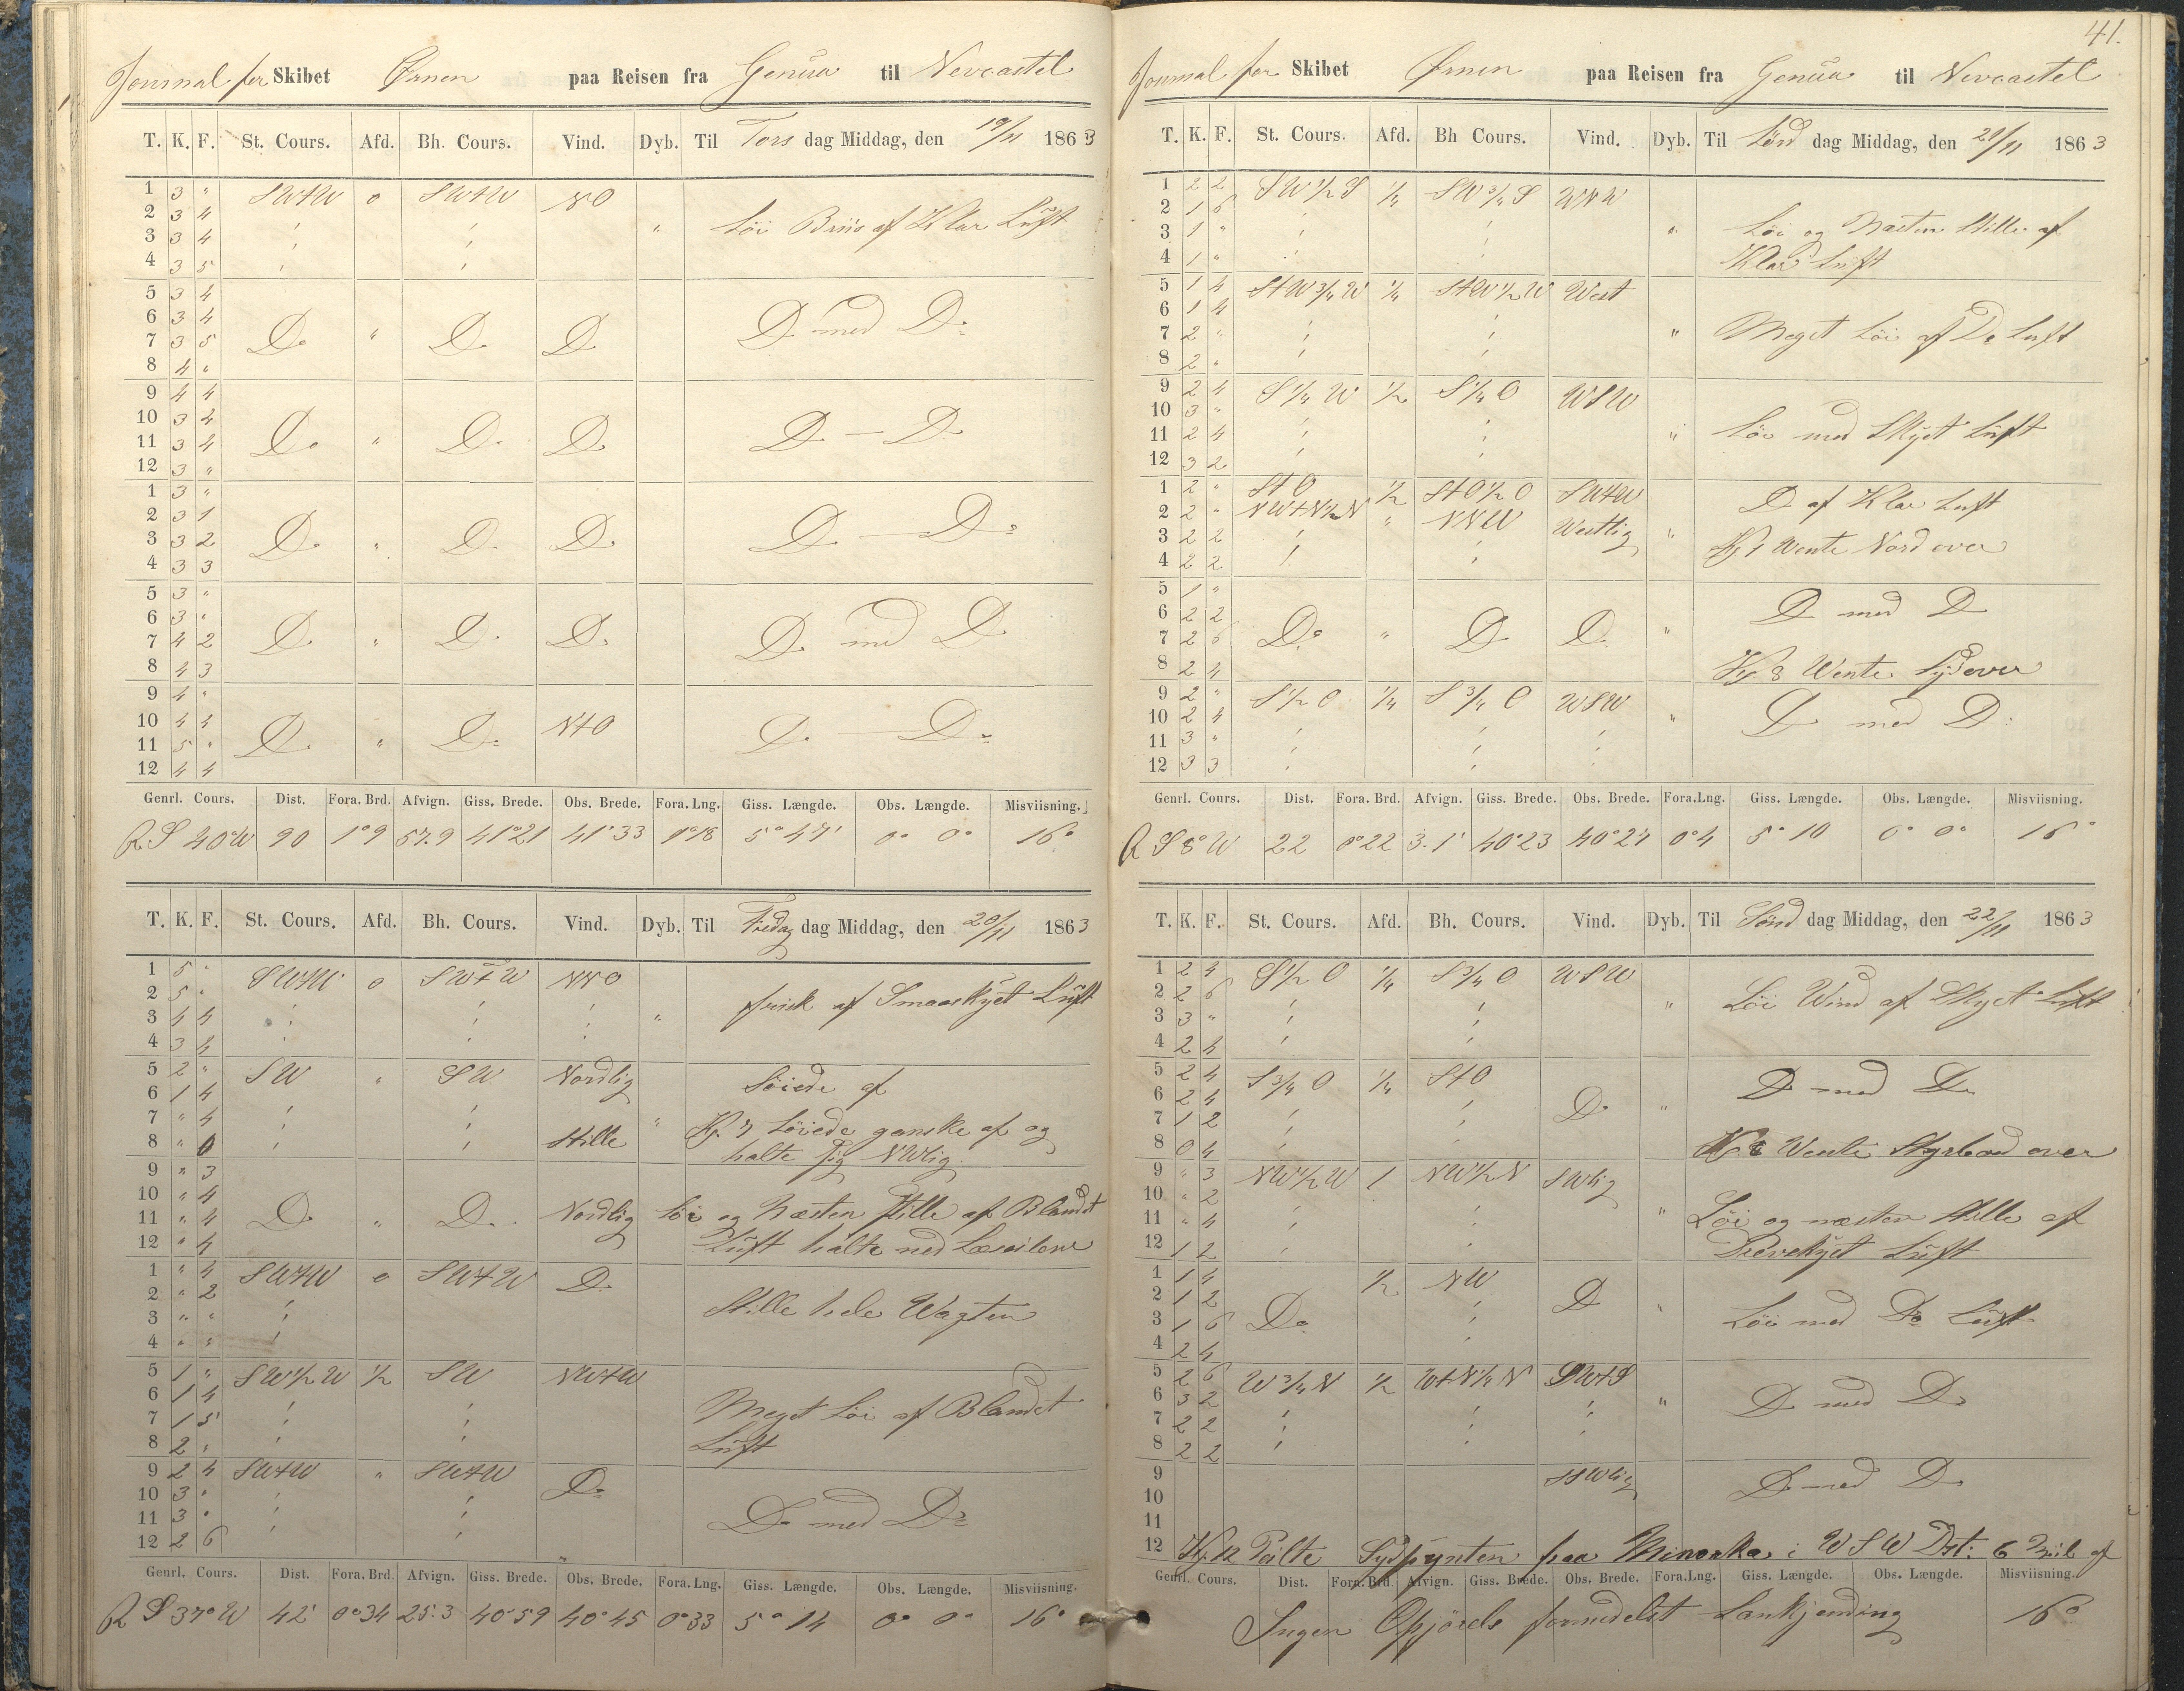 Journal for Skibet Ørnen paa Reisen fra Genua til Nevcastel
T. K. F. St. Cours. Afd. Bh. Cours. Vind. Dyb. Til Tors dag Middag, den 19/11 1863
1 3 " SWtW 0 SWtW NO
2 3 4 " Löi Briis af Klar Luft
3 3 4
4 3 5
5 3 4
6 3 4
7 3 5 Do " Do Do Do med Do
8 4 "
9 4 4
10 3 2
11 3 4 Do " Do Do Do — Do
12 3 "
1 3 "
2 3 1
3 3 2 Do " Do Do Do — Do
4 3 3
5 3 "
6 3 "
7 4 2 Do " Do Do Do med Do
8 4 3
9 4 "
10 4 4 NtO
11 5 " Do " Do Do — Do
12 4 4
Genrl. Cours. Dist. Fora. Brd. Afvign. Giss. Brede. Obs. Brede. Fora. Lng. Giss. Længde. Obs. Længde. Misviisning.
R S 40°W 90 1°9 57.9 41°21 41°33 1°18 5°47' 0° 0° 16°
T. K. F. St. Cours. Afd. Bh. Cours. Vind. Dyb. Til Fredag dag Middag, den 20/11 1863
1 5 " SWtW 0 SWtW NNO
2 5 " frisk af Smaaskyet Luft
3 4 4 "
4 3 4
5 2 " SW " SW Nordlig Löiede af
6 1 4
7 " 4 " Kl. 7 Löiede ganske af og
8 " 0 Stille halte sig NWlig
9 " 3
10 " 4
11 " 4 Do " Do Nordlig Löi og Næsten Stille af Blandet
12 " 4 Luft halte ned Læseilene
1 " 4 SWtW 0 SWtW Do
2 " 2 Stille hele Wagten
3 " "
4 " "
5 1 " SW½W ½ SW NWtW
6 1 4 Meget Löi af Blandet
7 1 5 Luft
8 2 "
9 2 4 SWtW " SWtW Do
10 3 "
11 3 " Do med Do
12 2 6
Genrl. Cours. Dist. Fora. Brd. Afvign. Giss. Brede. Obs. Brede. Fora. Lng. Giss. Længde. Obs. Længde. Misviisning.
R S 37°W 42' 0°34 25.3 40°59 40°45 0°33 5°14 0° 0° 16°
41.
Journal for Skibet Ørnen paa Reisen fra Genua til Nevcastel
T. K. F. St. Cours. Afd. Bh Cours. Vind. Dyb. Til Lørd dag Middag, den 21/11 1863
1 2 2 SW½S ¼ SW¾S WNW
2 1 6
3 1 " " Löi og Næsten Stille af
4 1 " Klar Luft
5 1 4 StW¾W ¼ StW½W West
6 1 4
7 2 " " Meget Löi af Do Luft
8 2 "
9 2 4 S¼W ½ S¼O WSW
10 3 "
11 2 4 " Löi med Skyet Luft
12 3 2
1 2 " StO ½ StO½O SWtW Do af Klar Luft
2 2 " NWtN½N " NNW Westlig
3 2 2 " Kl 1 Wente Nord over
4 2 2
5 1 "
6 2 2 Do med Do
7 2 6 Do " Do Do "
8 2 4 Kl. 8 Wente Syd over
9 2 " S½O ¼ S¾O WSW
10 2 4 " Do med Do
11 3 "
12 3 3
Genrl. Cours. Dist. Fora. Brd. Afvign. Giss. Brede. Obs. Brede. Fora.Lng. Giss. Længde. Obs. Længde. Misviisning.
R S 8°W 22 0°22 3.1' 40°23 40°27 0°4 5°10 0° 0° 16°
T. K. F. St. Cours. Afd. Bh. Cours. Vind. Dyb. Til Sønd dag Middag, den 22/11 1863
1 2 4 S½O ¼ S¾O WSW
2 2 6 " Löi Wind af Skyet Luft
3 3 "
4 2 4
5 2 4 S¾O ¼ StO
6 2 4 Do " Do med Do
7 1 2
8 0 4 Kl. 8 Wente Styrbord over
9 " 3 NW½W 1 NW½N SWlig
10 " 2
11 " 4 " Löi og næsten Stille af
12 1 2 Drevskyet Luft
1 1 4 ½ NW
2 1 2 Do
3 1 6 Do " Löi med Do Luft
4 2 4
5 2 6 W¾N ½ WtN¼N SWtS
6 3 2 " Do med Do
7 2 2
8 2 2
9 SSWlig
10 Do med Do
11
12 Kl. 12 Peilte Sydpynten paa Minorka i WSW Dst: 6 Mil af
Genrl. Cours. Dist. Fora. Brd. Afvign. Giss. Brede. Obs. Brede. Fora.Lng. Giss. Længde. Obs. Længde. Misviisning.
Ingen Opjörels formedelst Lankjending 16°